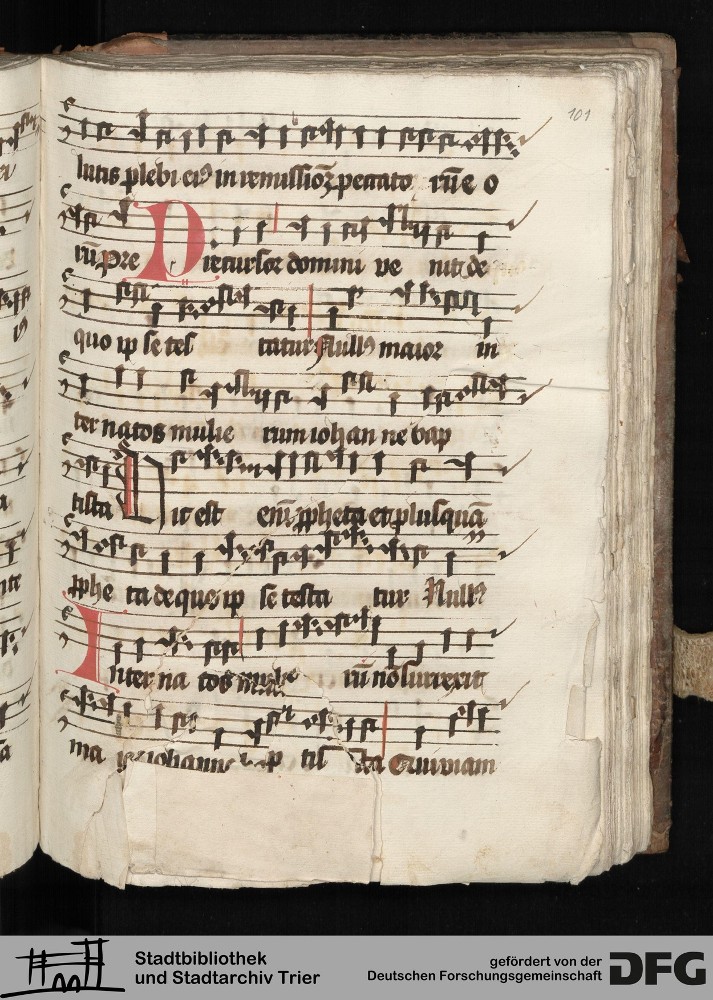 101
lutis plebi eiꝰ in remissioꝫ peccato rū e o
rū pre Precursor domini ve nit de
quo ip se tes tatur Nullꝰ maior in
ter natos mulie rum iohan ne bap
tista Hic est eni ꝓpheta et plusquā
ꝓphe ta de quo ip se testa tur Nullꝰ
Inter na tos mulie rū nō surrexit
ma ior iohanne bap tis ta Cui viam
Stadtbibliothek
und Stadtarchiv Trier
gefördert von der
Deutschen Forschungsgemeinschaft
DFG